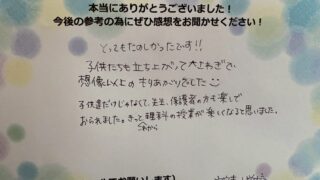 本当にありがとうございました！
今後の参考の為にぜひ感想をお聞かせください！
とってもたのしかったです!!
子供たちも立ち上がって大さわぎで、
想像以上のもりあがりをした
子供達だけじゃなくて、先生、保護者の方も楽しで
おられました。きっと理科の授業が楽しくなると思いました。
これから
お願いします）